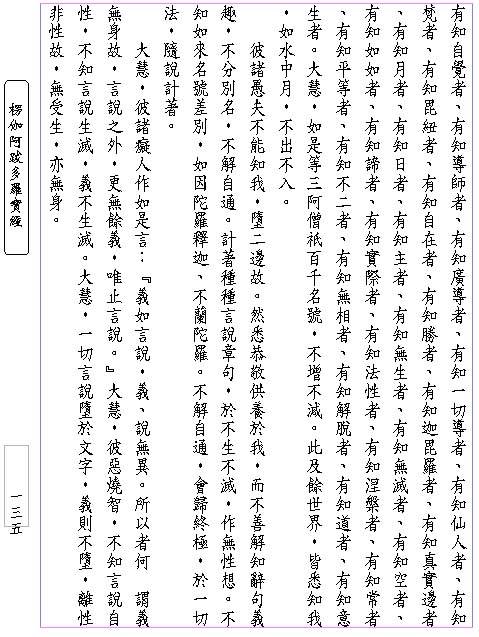 有知自覺者、有知導師者、有知廣導者、有知一切導者、有知仙人者、有知
梵者、有知毘紐者、有知自在者、有知勝者、有知迦毘羅者、有知真實邊者
、有知月者、有知日者、有知主者、有知無生者、有知無滅者、有知空者、
有知如如者、有知諦者、有知實際者、有知法性者、有知涅槃者、有知常者
、有知平等者、有知不二者、有知無相者、有知解脫者、有知道者、有知意
生者。大慧，如是等三阿僧祇百千名號，不增不減。此及餘世界，皆悉知我
，如水中月，不出不入。
彼諸愚夫不能知我，墮二邊故。然悉恭敬供養於我，而不善解知辭句義
趣，不分別名，不解自通。計著種種言說章句，於不生不滅，作無性想。不
知如來名號差別，如因陀羅釋迦、不蘭陀羅。不解自通，會歸終極，於一切
法，隨說計著。
大慧，彼諸癡人作如是言：『義如言說，義、說無異。所以者何 謂義
無身故，言說之外，更無餘義，唯止言說。』大慧，彼惡燒智，不知言說自
性，不知言說生滅，義不生滅。大慧，一切言說墮於文字，義則不墮，離性
非性故，無受生，亦無身。
楞伽阿跋多羅寶經
一三五